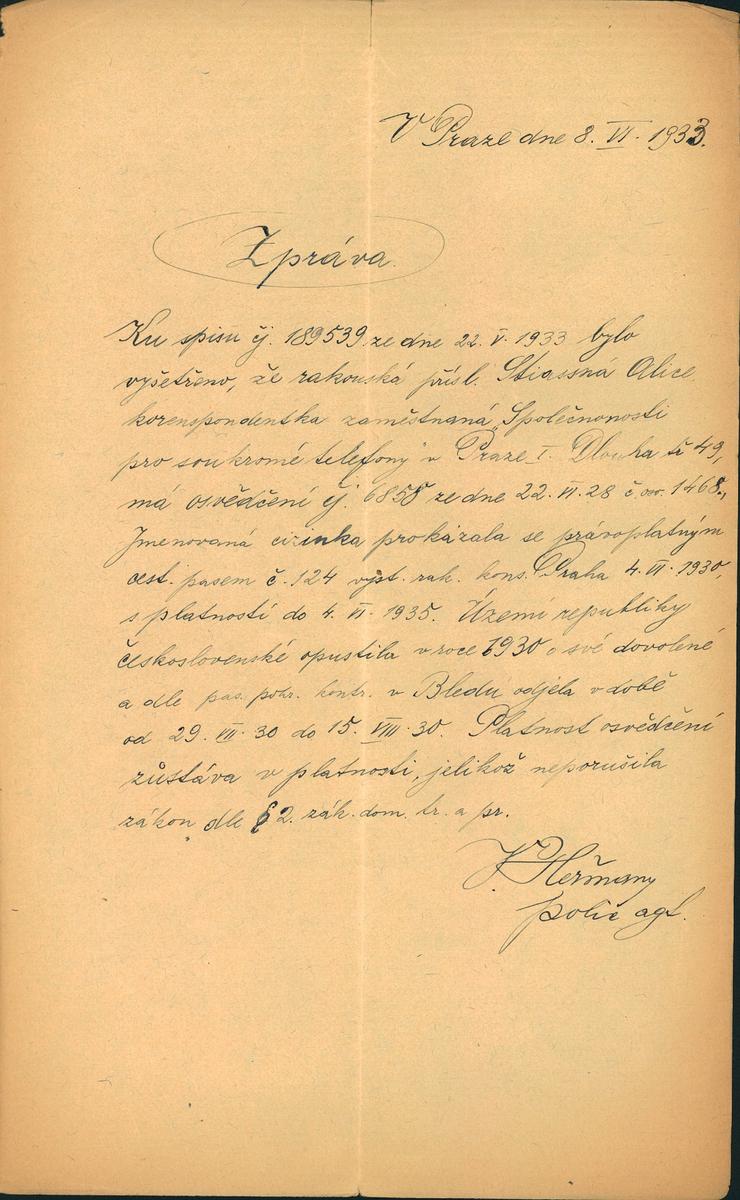 V Praze dne 8. VI. 1933.
Zpráva.
Ku spisu čj. 189539 ze dne 22. V. 1933 bylo
vyšetřeno, že rakouská přísl. Stiassná Alice
korenspondentka zaměstnaná „Společnonosti
pro soukromé telefony" v Praze I. Dlouha tř 49,
má osvědčení čj. 6858 ze dne 22. VI. 28 č. osv. 1468.,
Jmenovaná cizinka prokázala se právoplatným
cest. pasem č. 124 vyst. rak. kons. Praha 4. VI. 1930,
s platností do 4. VI. 1935. Území republiky
československé opustila v roce 1930 o své dovolené
a dle pas. pohr. kontr. v Bledu odjela v době
od 29. VII. 30 do 15. VIII. 30. Platnost osvědčení
zůstáva v platnosti, jelikož neporušila
zákon dle § 2. zák. dom. tr. a pr.
V. Heřmany
polic agt.